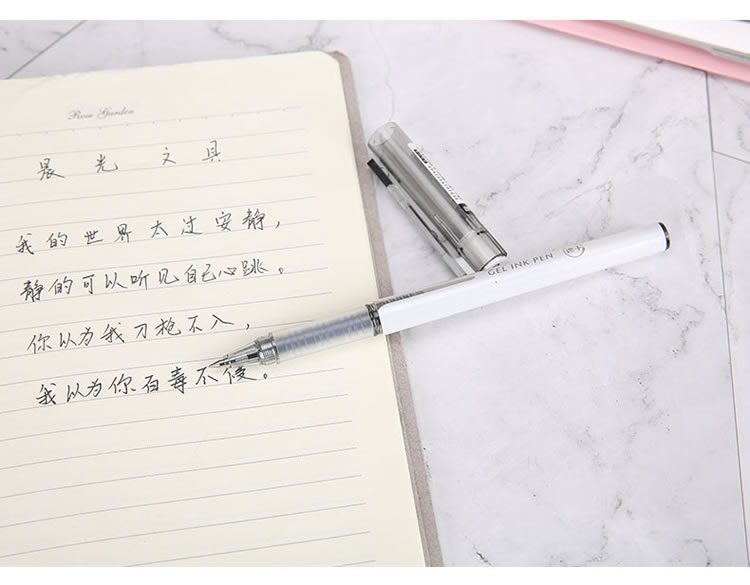 Rose Garden
晨光 文具
我的世界太过安静，
静的可以听见自己心跳。
你以为我刀枪不入，
我以为你百毒不侵。
GEL INK PEN